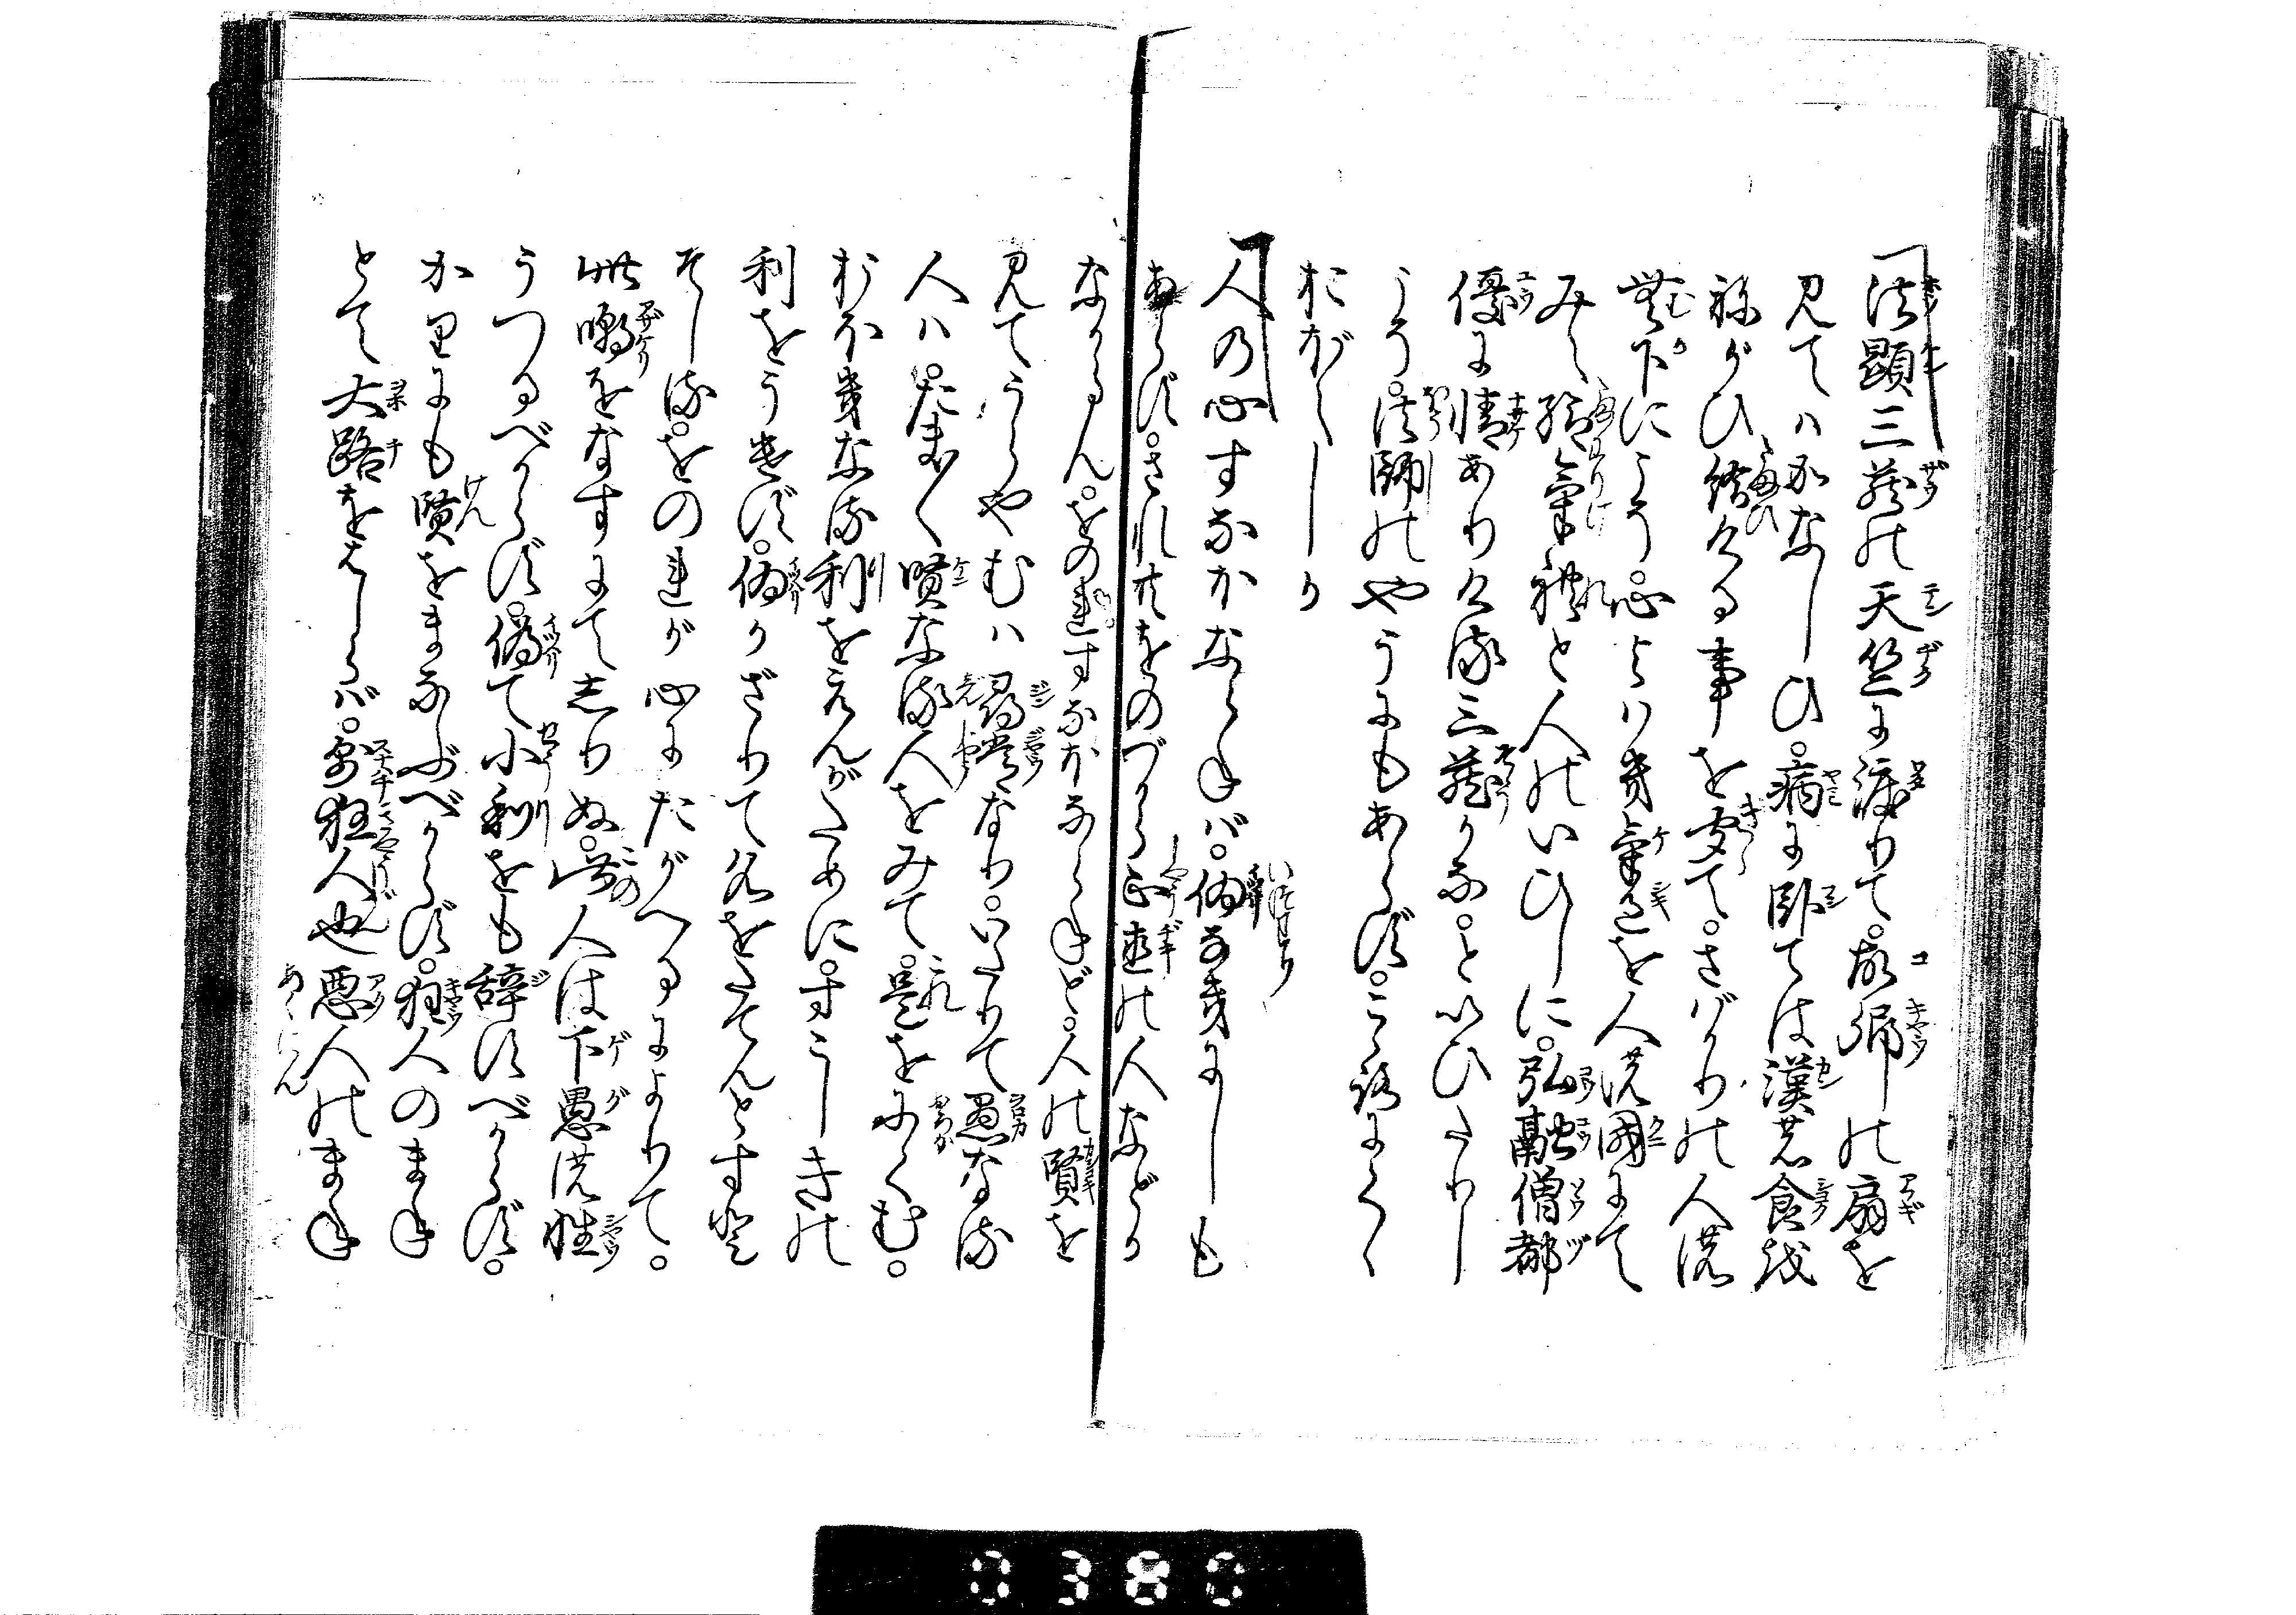 法顕三蔵の天竺に渡りて。故郷の扇を
見てハかなしひ。病に臥ては漢の食を
ねがひ給ける事を聞て。さばかりの人の
無下にこそ。心よハき気色を人の国にて
みえ給気礼と人のいひしに。弘融僧都
優に情ありける三蔵かな。といひたりし
こそ。法師のやうにもあらず。こゝろにくゝ
おぼへしか
人の心すなおならねバ。偽なきにしも
あらず。され共をのづから正直の人などか
なからん。をのれすなおならねど。人の賢を
見てうらやむハ尋常なり。いたりて愚なる
人ハ。たま〱賢なる人をみて。是をにくむ。
おほきなる利をえんがために。すこしきの
利をうけず。偽かざりて名をたてんとすと
そしる。をのれが心にたがへるによりて。
此嘲をなすにて志りぬ。此人は下愚の性
うつるべからず。偽て小利をも辞すべからず。
かりにも賢をまなぶべからず。狂人のまね
とて大路をはしらバ。則狂人也悪人のまね